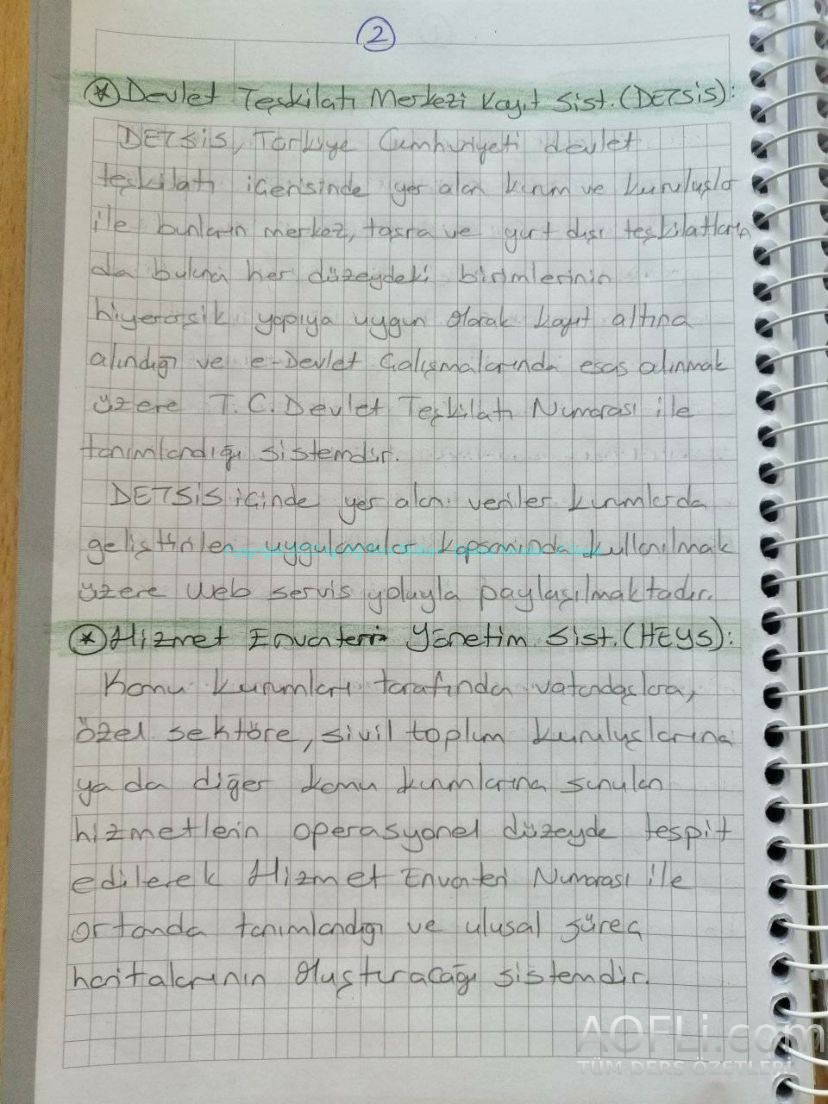 2
* Devlet Teşkilatı Merkezi Kayıt Sist. (DETSİS):
DETSİS, Türkiye Cumhuriyeti devlet
teşkilatı içerisinde yer alan kurum ve kuruluşlar
ile bunların merkez, taşra ve yurt dışı teşkilatların
da bulunan her düzeydeki birimlerinin
hiyerarşik yapıya uygun olarak kayıt altına
alındığı ve e-Devlet çalışmalarında esas alınmak
üzere T.C. Devlet Teşkilatı Numarası ile
tanımlandığı sistemdir.
DETSİS içinde yer alan veriler kurumlarda
geliştirilen uygulamalar kapsamında kullanılmak
üzere web servis yoluyla paylaşılmaktadır.
* Hizmet Envanteri Yönetim Sist. (HEYS):
Kamu kurumları tarafından vatandaşlara,
özel sektöre, sivil toplum kuruluşlarına
ya da diğer kamu kurumlarına sunulan
hizmetlerin operasyonel düzeyde tespit
edilerek Hizmet Envanteri Numarası ile
ortamda tanımlandığı ve ulusal süreç
haritalarının oluşturacağı sistemdir.
AOFLi.com
TÜM DERS ÖZETLERİ